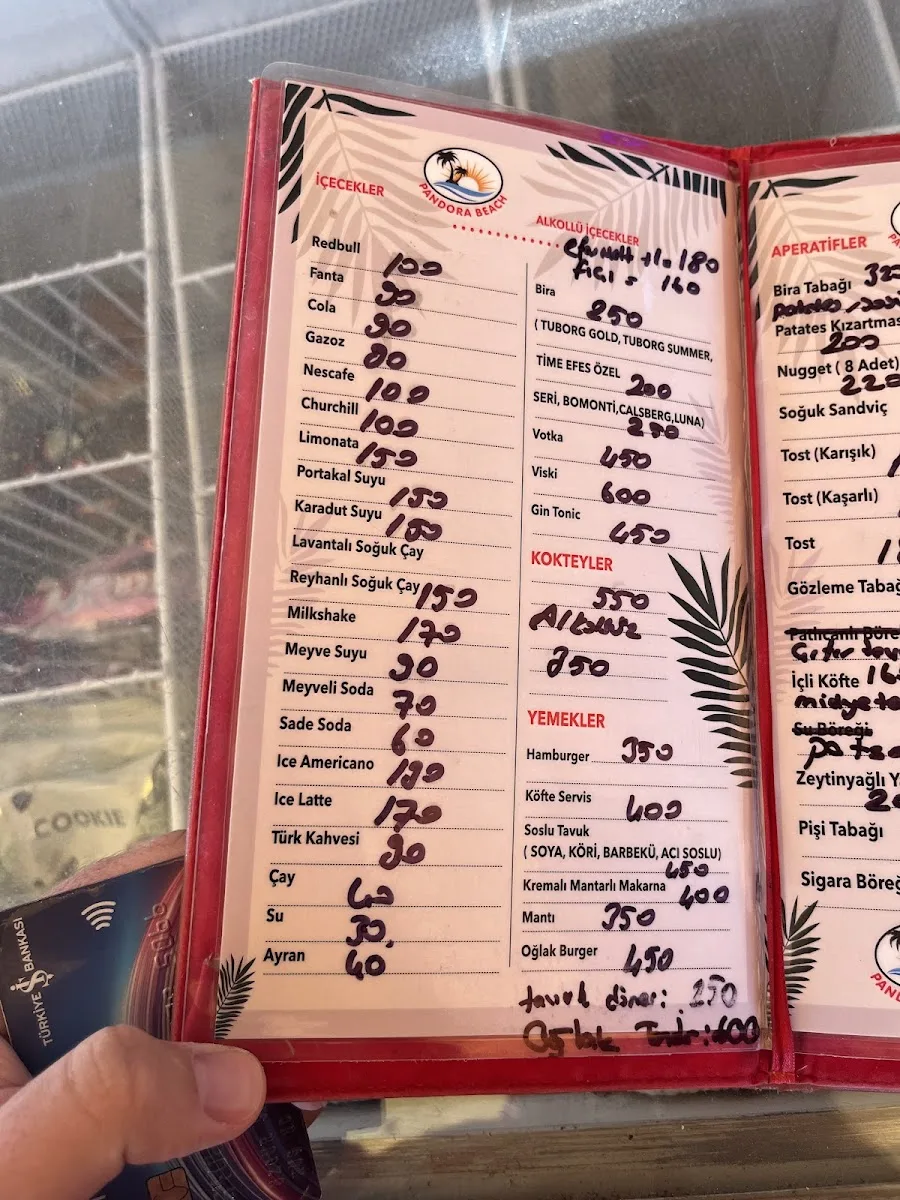 İÇECEKLER
PANDORA BEACH
Redbull 100
Fanta 90
Cola 90
Gazoz 80
Nescafe 100
Churchill 100
Limonata 150
Portakal Suyu 150
Karadut Suyu 150
Lavantalı Soğuk Çay
Reyhanlı Soğuk Çay 150
Milkshake 170
Meyve Suyu 90
Meyveli Soda 70
Sade Soda 60
Ice Americano 190
Ice Latte 170
Türk Kahvesi 90
Çay 40
Su 30
Ayran 40
ALKOLLÜ İÇECEKLER
180
FIÇI = 160
Bira 250
( TUBORG GOLD, TUBORG SUMMER,
TİME EFES ÖZEL 200
SERİ, BOMONTİ,CALSBERG,LUNA)
250
Votka 450
Viski 600
Gin Tonic 450
KOKTEYLER
550
Alkolsüz
350
YEMEKLER
Hamburger 350
Köfte Servis 400
Soslu Tavuk
( SOYA, KÖRİ, BARBEKÜ, ACI SOSLU)
450
Kremalı Mantarlı Makarna 400
Mantı 350
Oğlak Burger 450
tavuk döner: 250
Oğlak :600
APERATİFLER
Bira Tabağı
Patates Kızartması
200
Nugget ( 8 Adet)
220
Soğuk Sandviç
Tost (Karışık)
Tost (Kaşarlı)
Tost
Gözleme Tabağ
Patlıcanlı Böre
İçli Köfte
midye ta
Su Böreği
Zeytinyağlı Y
Pişi Tabağı
Sigara Böreğ
COOKIE
TÜRKİYE İŞ BANKASI